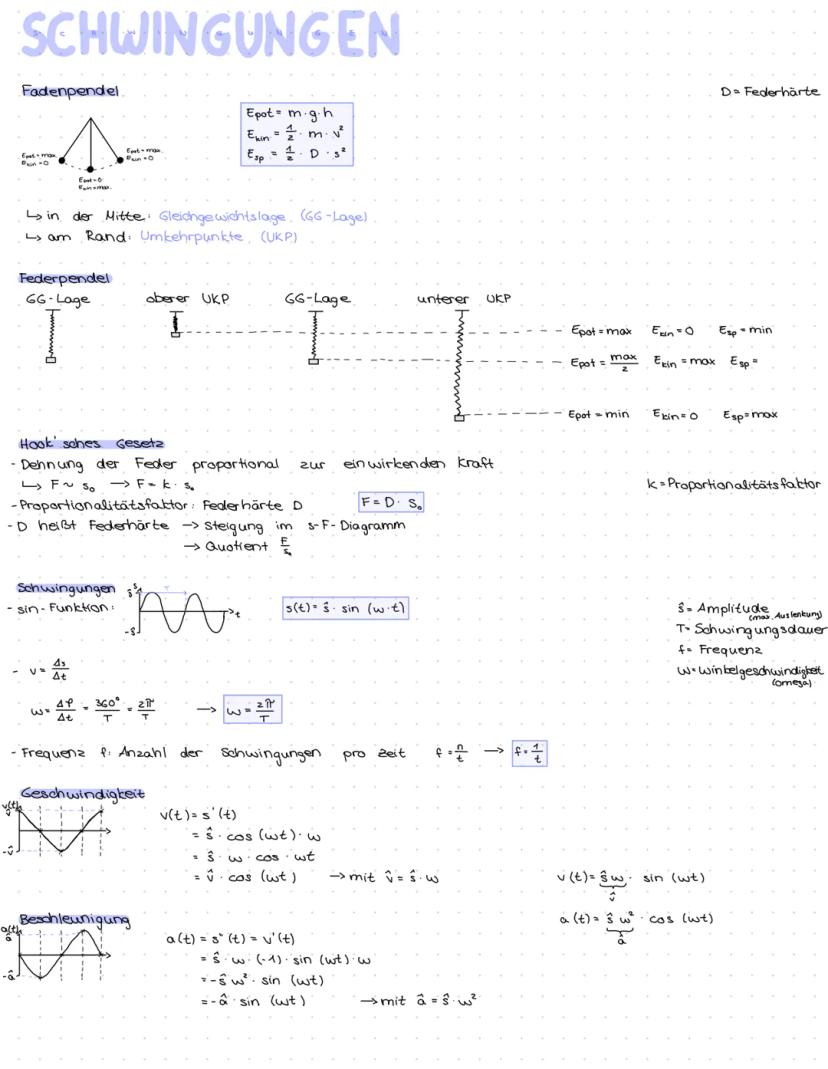 SCHWINGUNGEN
Fadenpendel
D = Federhärte
Epot = m · g · h
Ekin = 1/2 · m · v²
Esp = 1/2 · D · s²
Epot = max
Ekin = 0
Epot = max.
Ekin = 0
Epot = 0
Ekin = max.
↳ in der Mitte: Gleichgewichtslage (GG-Lage)
↳ am Rand: Umkehrpunkte (UKP)
Federpendel
GG-Lage oberer UKP GG-Lage unterer UKP
Epot = max Ekin = 0 Esp = min
Epot = max/2 Ekin = max Esp =
Epot = min Ekin = 0 Esp = max
Hook'sches Gesetz
- Dehnung der Feder proportional zur einwirkenden Kraft
↳ F ~ s₀ → F = k · s₀
k = Proportionalitätsfaktor
- Proportionalitätsfaktor: Federhärte D F = D · s₀
- D heißt Federhärte → Steigung im s-F-Diagramm
→ Quotient F/s₀
Schwingungen
- sin-Funktion: ŝ s T t -ŝ s(t) = ŝ · sin (ω · t)
ŝ = Amplitude (max. Auslenkung)
T = Schwingungsdauer
f = Frequenz
ω = Winkelgeschwindigkeit (omega)
- v = Δs/Δt
ω = Δφ/Δt = 360°/T = 2π/T → ω = 2π/T
- Frequenz f: Anzahl der Schwingungen pro Zeit f = n/t → f = 1/t
Geschwindigkeit
v(t) v̂ -v̂
v(t) = s'(t)
= ŝ · cos (ωt) · ω
= ŝ · ω · cos · ωt
= v̂ · cos (ωt) → mit v̂ = ŝ · ω
v(t) = ŝω · sin (ωt)
v̂
Beschleunigung
a(t) = ŝ ω² · cos (ωt)
â
a(t) â -â
a(t) = s''(t) = v'(t)
= ŝ · ω · (-1) · sin (ωt) · ω
= -ŝ ω² · sin (ωt)
= -â · sin (ωt) → mit â = ŝ · ω²